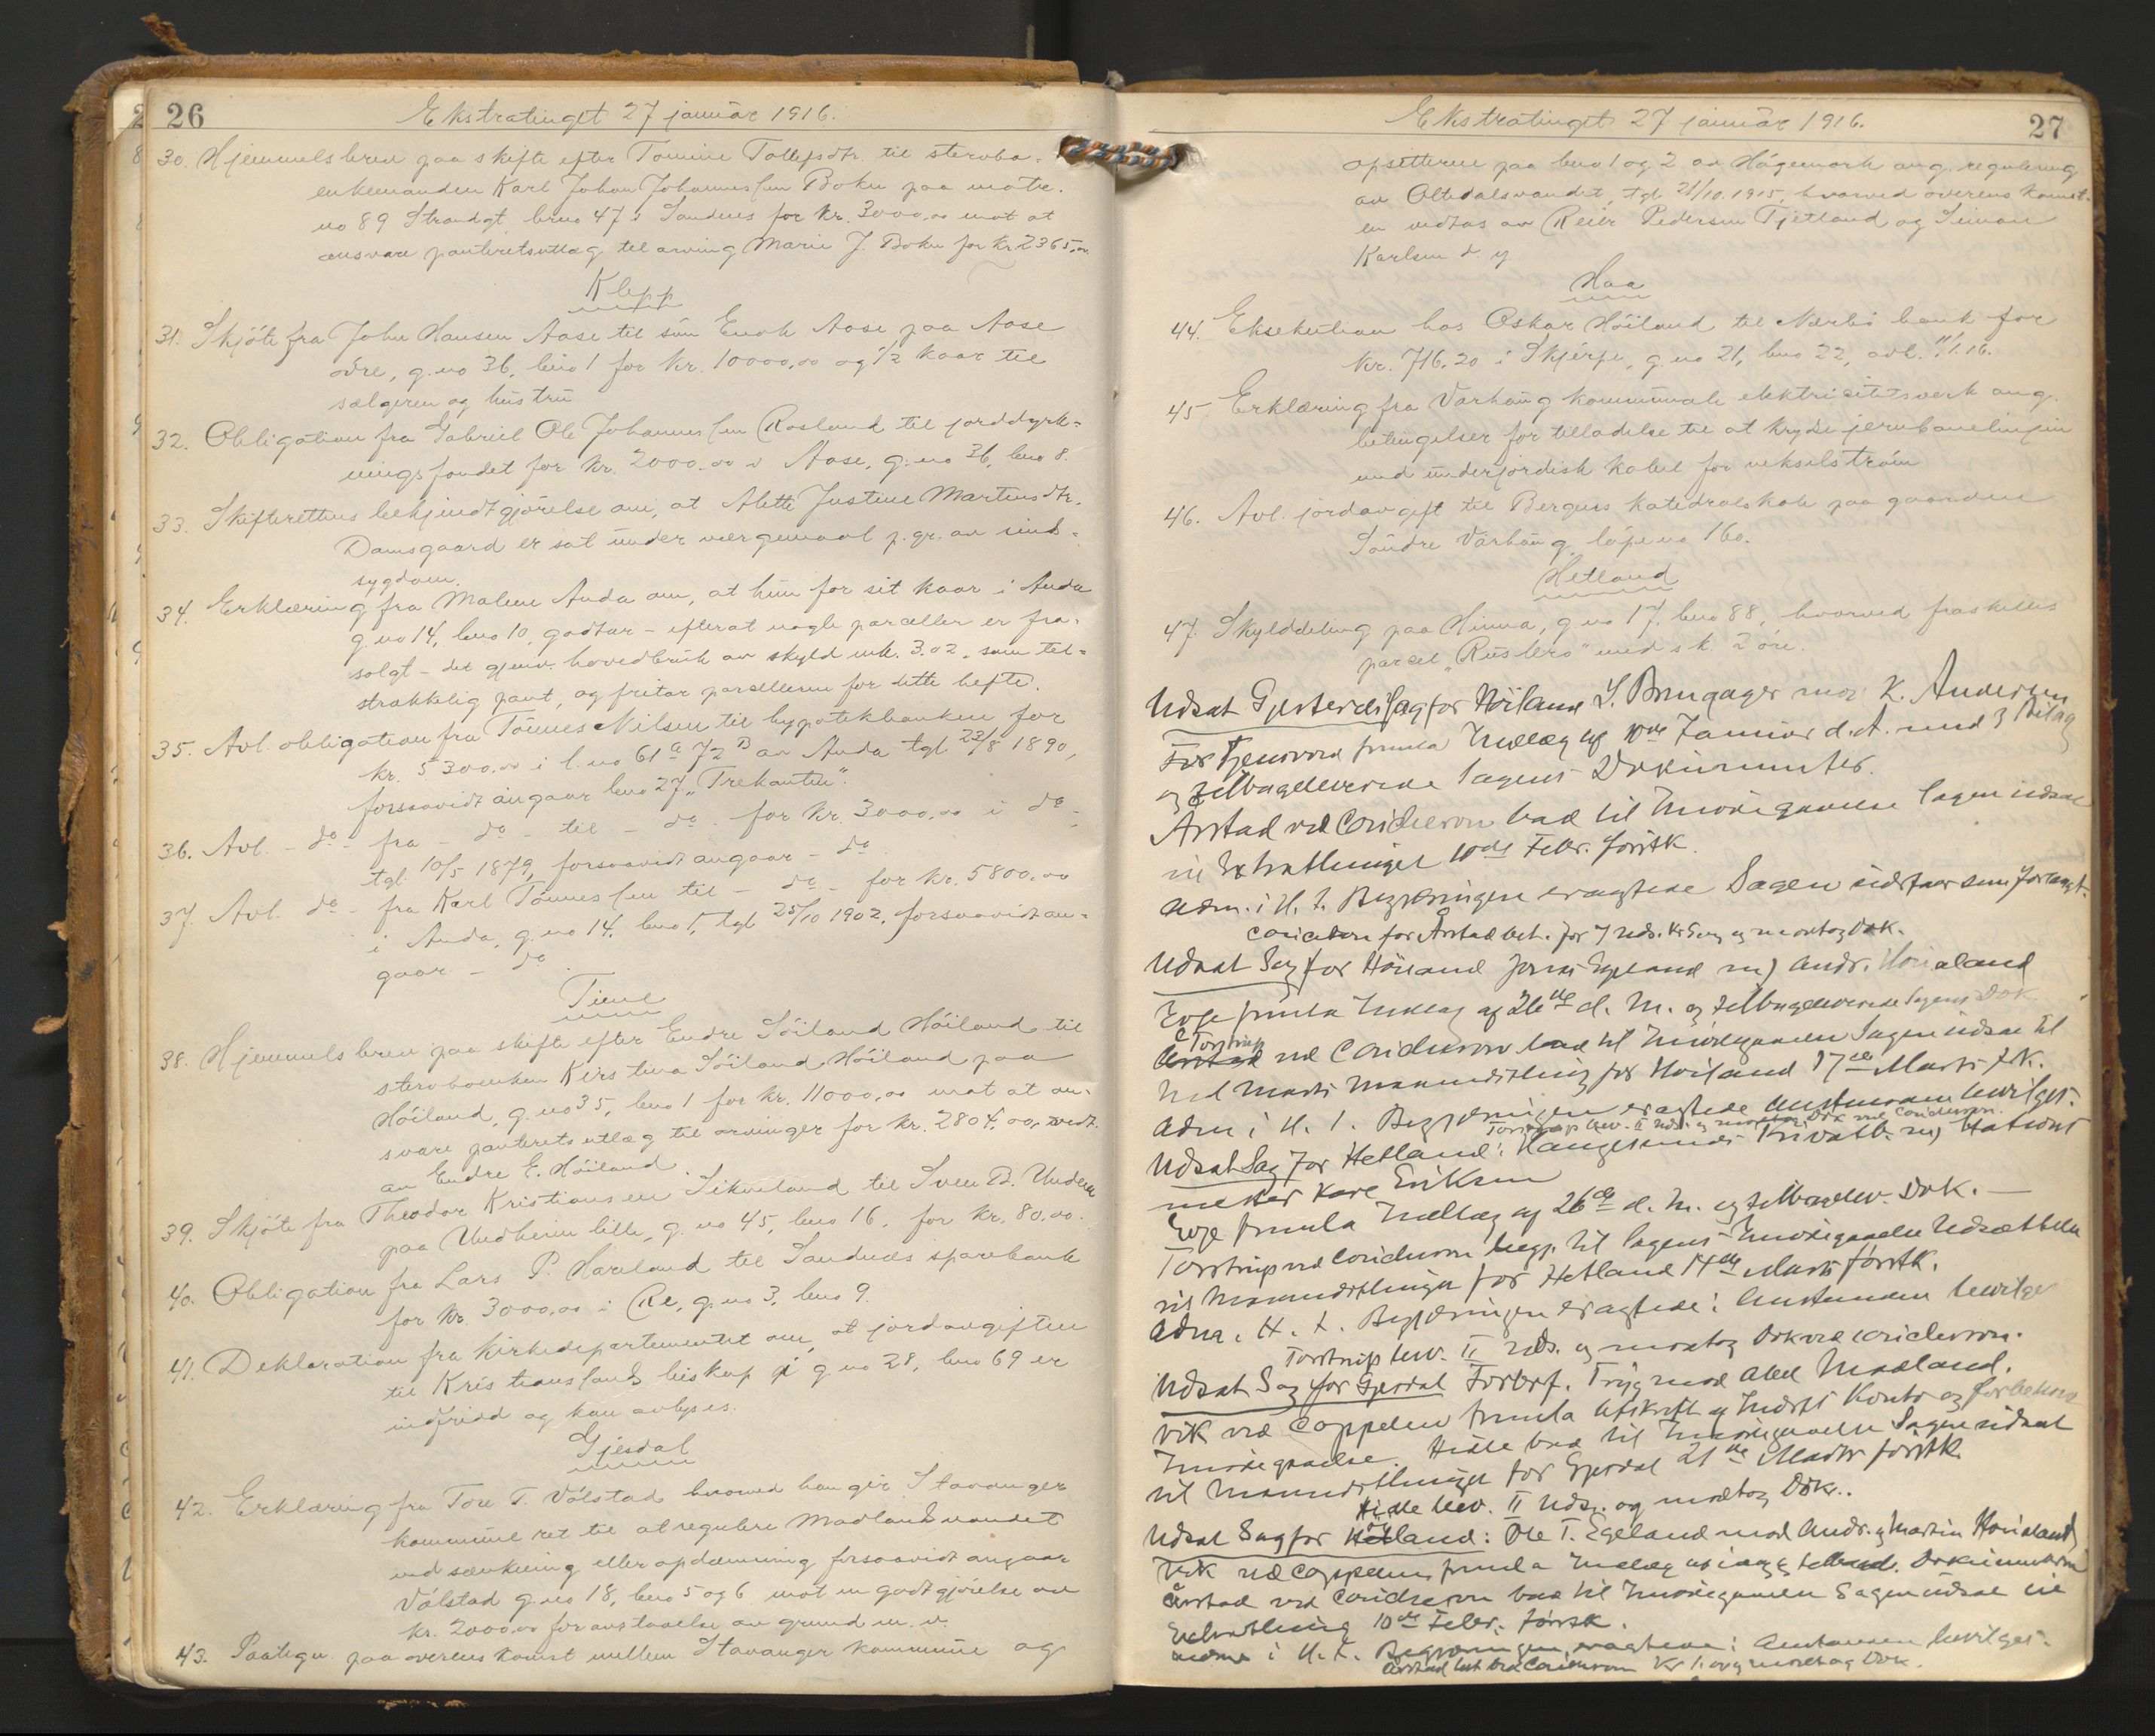 26
Ekstratinget 27 januar 1916.
30. Hjemmelsbrev paa skifte efter Tomine Tollefsdtr. til stervbo-
enkemanden Karl Johan Johannessen Boku paa matr.
no 89 Strandgt, brno 47 i Sandnes for kr. 3000,00 mot at
ansvare panteretsutlæg til arving Marie J. Boku for kr. 2365,00
Klepp
31. Skjöte fra John Hansen Aase til sön Enok Aase paa Aase
övre, g.no 36, bno 1 for kr. 10000,00 og 1/2 kaar til
sælgeren og hustru
32. Obligation fra Gabriel Ole Johannessen Rosland til jorddyrk-
ningsfondet for kr. 2000,00 i Aase, g.no 36, bno 8.
33. Skifterettens bekjendtgjörelse om, at Alette Justine Martinsdtr.
Damsgaard er sat under værgemaal p. gr. av sind-
sygdom.
34. Erklæring fra Malene Anda om, at hun for sit kaar i Anda
g.no 14, bno 10, godtar - efterat nogle parceller er fra-
solgt - det gjenv. hovedbruk av skyld mk. 3.02, som til-
strækkelig pant, og fritar parcellerne for dette hefte.
35. Avl. obligation fra Tönnes Nilsen til hypotekbanken for
kr. 5300,00 i l.no 61a 72 B av Anda tgl. 23/8 1890,
forsaavidt angaar bno 27 „Trekanten".
36. Avl. - do - fra - do - til - do - for kr. 3000,00 i do -
tgl. 10/5 1879, forsaavidt angaar - do
37. Avl. do - fra Karl Tönnessen til - do - for kr. 5800,00
i Anda, g.no 14, bno 1, tgl 25/10 1902, forsaavidt an-
gaar - do.
Time
38. Hjemmelsbrev paa skifte efter Endre Söiland Höiland til
stervboenken Kirstina Söiland Höiland paa
Höiland, g.no 35, bno 1 for kr. 11000,00 mot at an-
svare panteretsutlæg til arvinger for kr. 2804,00, vedt.
av Endre E. Höiland.
39. Skjöte fra Theodor Kristiansen Sikveland til Sven B. Undem
paa Undheim lille, g.no 45, bno 16, for kr. 80,00.
40. Obligation fra Lars P. Haveland til Sandnes sparebank
for kr. 3000,00 i Re, g.no 3, bno 9.
41. Deklaration fra kirkedepartementet om, at jordavgiften
til Kristianssands biskop i g.no 28, bno 69 er
indfriid og kan avlyses.
Gjesdal
42. Erklæring fra Tore T. Völstad hvorved han gir Stavanger
kommune ret til at regulere Madlandsvandet
ved sænkning eller opdæmning forsaavidt angaar
Völstad g.no 18, bno 5 og 6 mot en godtgjörelse av
kr. 2000,00 for avstaaelse av grund m. v.
43. Paategn. paa overenskomst mellem Stavanger kommune og
27
Ekstratinget 27 januar 1916.
opsitterne paa bno 1 og 2 av Högemork ang. regulering
av Oltedalsvandet, tgl. 21/10. 1915, hvorved overenskomst-
en vedtas av Reier Pedersen Tjetland og Simon
Karlsen d. y
Haa
44. Eksekution hos Oskar Höiland til Nærbö bank for
kr. 716.20 i Skjerpe, g.no 21, bno 22, avh. 11/1.16.
45. Erklæring fra Varhaug kommunale elektricitetsverk ang.
betingelser for tilladelse til at krydse jernbanelinjen
med underjordisk kabel for vekselström
46. Avl. jordavgift til Bergens katedralskole paa gaarden
Söndre Varhaug, löpeno 160.
Hetland
47. Skylddeling paa Hinna, g.no 17, bno 88, hvorved fraskilles
parcel „Rusbro" med sk. 2 öre.
Udsat Gjesteretssag for Höiland L. Brungager mod K. Andersen
For Tjensvold fremla Indlæg af 10de Januar d. A. med 3 Bilag
og tilbageleverede Sagens Dokumenter.
Årstad ved Coriderson bad til Imødegaaelse Sagen udsat
til Extrathinget 10de Febr. førstk.
Adm. i H. t. Begjæringen eragtede Sagen udstaar som forlangt.
Coriderson for Årstad bet. for I Uds. Kr 5 og og modtog Dok.
Udsat Sag for Höiland Jonas Egeland m) Andr. Höialand
Eege fremla Indlæg af 26de d. M. og tilbageleverede Sagens Dok
Torstrup
Årstad ved Coriderson bad til Imødegaaelse Sagen udsat til
ved Marts Maanedsthing for Höiland 17de Marts f.k.
Adm i H. t. Begjæringen eragtede Anstanden bevilget.
Torstrup bev. II Uds. og modtog Dok ved Coriderson.
Udsat Sag for Hetland: Haugesunds Privatb. m) Stations
mester Kare Eriksen
Eege fremla Indlæg af 26de d. M. og tilbagelev. Dok. —
Torstrup ved Coriderson begj. til Sagens Imødegaaelse Udsættelse
til Maanedsthinget for Hetland 14de Marts førstk.
Adm. i H. t. Begjæringen eragtede: Anstanden bevilget
Torstrup bev. II Uds. og modtog Dok ved Coriderson.
Udsat Sag for Gjesdal Forbrf. Tryg mod Abel Madland.
Vik ved Cappelen fremla Afskrift af Indrfs Konto og forbeholdt
Imødegaaelse. Hille bad til Imødegaaelse Sagen udsat
til Maanedsthinget for Gjesdal 21de Marts førstk.
Hille bev. II Uds. og modtog Dok.
Udsat Sag for Hetland: Ole T. Egeland mod Andr. og Martin Höialand
Vik ved Cappelen fremla Indlæg af idag og tilbagel. Dokumenterne
Årstad ved Coriderson bad til Imødegaaelse Sagen udsat til
Extrathing 10de Febr. førstk.
Adm i H. t. Begjæringen eragtede: Anstanden bevilget.
Årstad bet. ved Coriderson Kr 1. og modtog Dok.